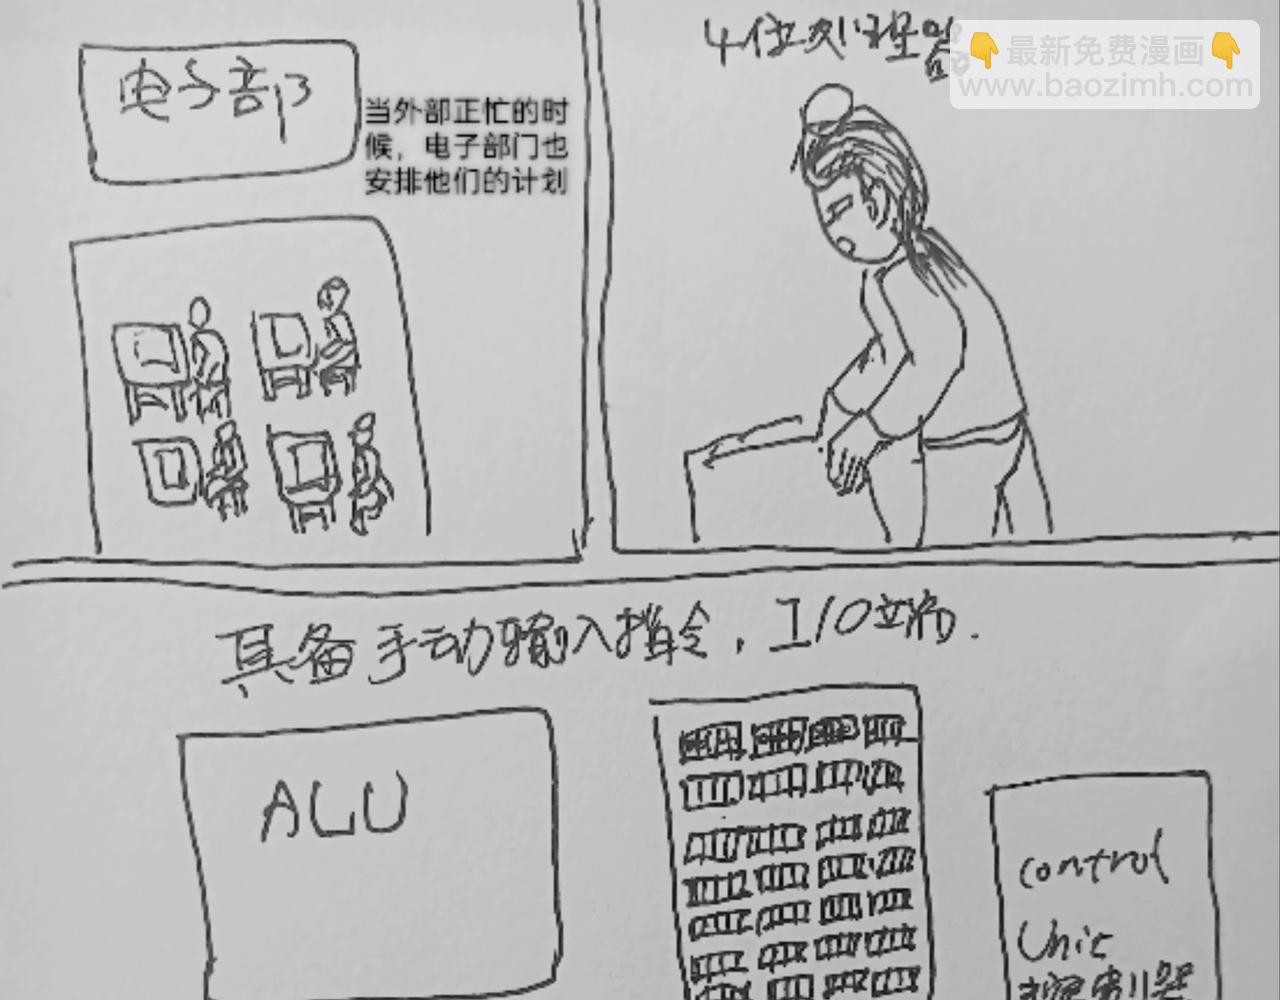 电子部
当外部正忙的时
候，电子部门也
安排他们的计划
4位处理器
👇最新免费漫画👇
www.baozimh.com
具备手动输入指令，I/O立端.
ALU
control
Unit
控制器